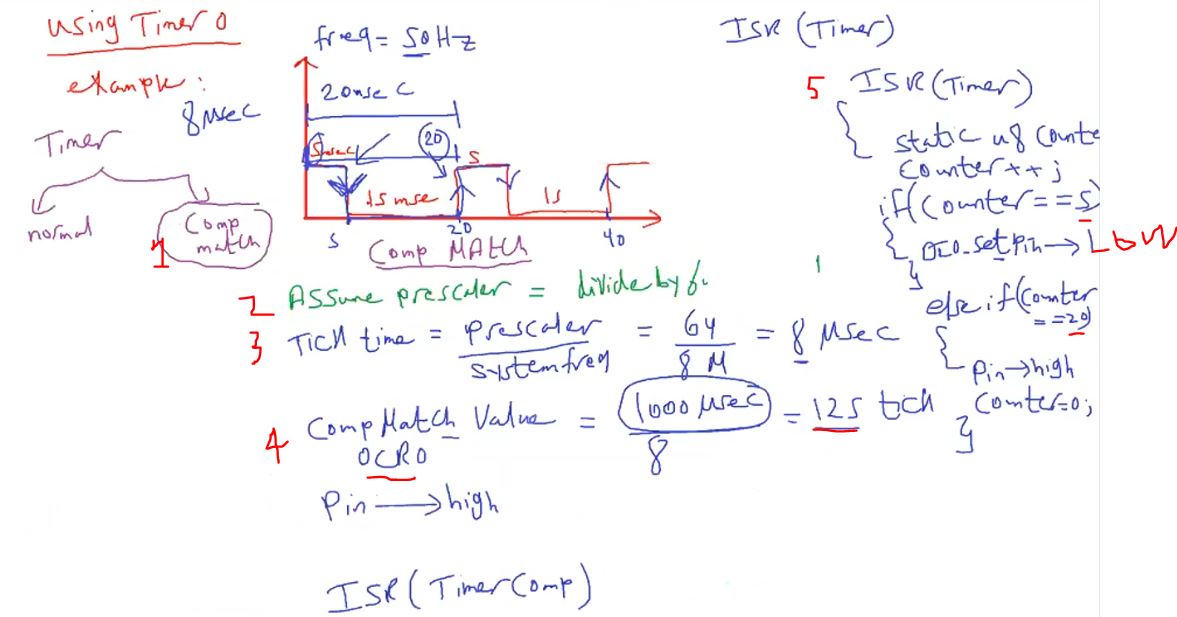 using Timer 0
example :
8 µsec
Timer
normal
Comp
match
1
freq = 50Hz
20msec
5msec
20
5
15 mse
15
5
20
40
Comp MATCH
2 Assume prescaler = divide by 6
3 Tick time = prescaler / system freq = 64 / 8 M = 8 µsec
4 Comp Match Value = 1000 µsec / 8 = 125 tick
OCR0
Pin → high
ISR ( Timer Comp )
ISR ( Timer )
5 ISR ( Timer )
{
static u8 counte
Counter ++ ;
if ( Counter == 5 )
{ DIO_set pin → Low
}
else if ( Counter
== 20 )
{
Pin → high
Counter = 0 ;
}